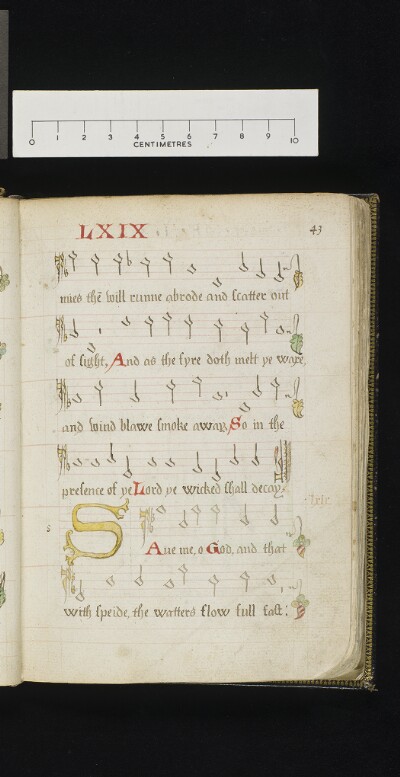 0 1 2 3 4 5 6 7 8 9 10
CENTIMETRES
LXIX
43
mies thē will runne abrode and scatter out
of sight, And as the fyre doth melt ye waxe,
and wind blawe smoke away, So in the
presence of ye Lord ye wicked shall decay.
S
s
Aue me, o God, and that
with speide, the watters flow full fast: